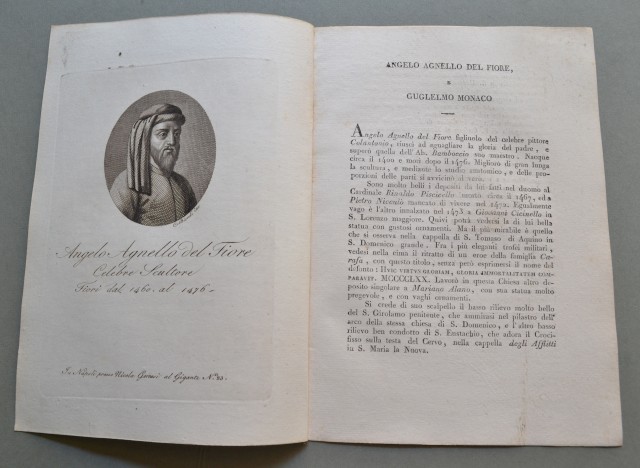 Angelo Agnello del Fiore
Celebre Scultore
Fiorì dal 1460. al 1476.
In Napoli presso Nicola Gervasi al Gigante N.º 23.
ANGELO AGNELLO DEL FIORE,
E
GUGLELMO MONACO
Angelo Agnello del Fiore figliuolo del celebre pittore
Colantonio, riuscì ad uguagliare la gloria del padre, e
superò quella dell'Ab. Bamboccio suo maestro. Nacque
circa il 1400 e morì dopo il 1476. Migliorò di gran lunga
la scultura, e mediante lo studio anatomico, e delle pro-
porzioni delle parti si avvicinò al vero.
Sono molto belli i depositi da lui fatti nel duomo al
Cardinale Rinaldo Piscicello morto circa il 1467, ed a
Pietro Niccolò mancato di vivere nel 1470. Egualmente
vago è l'altro innalzato nel 1473 a Giovanni Cicinello in
S. Lorenzo maggiore. Quivi potrà vedersi la di lui bella
statua con gustosi ornamenti. Ma il più mirabile è quello
che si osserva nella cappella di S. Tomaso di Aquino in
S. Domenico grande. Fra i più eleganti trofei militari,
vedesi nella cima il ritratto di un eroe della famiglia Ca-
rafa, con questo titolo, senza però esprimersi il nome del
defonto: Huic VIRTUS GLORIAM, GLORIA IMMORTALITATEM COM-
PARAVIT. MCCCCLXX. Lavorò in questa Chiesa altro depo-
sito singolare a Mariano Alano, con sua statua molto
pregevole, e con vaghi ornamenti.
Si crede di suo scalpello il basso rilievo molto bello
del S. Girolamo penitente, che ammirasi nel pilastro dell'
arco della stessa chiesa di S. Domenico, e l'altro basso
rilievo ben condotto di S. Eustachio, che adora il Croci-
fisso sulla testa del Cervo, nella cappella degli Afflitti
in S. Maria la Nuova.